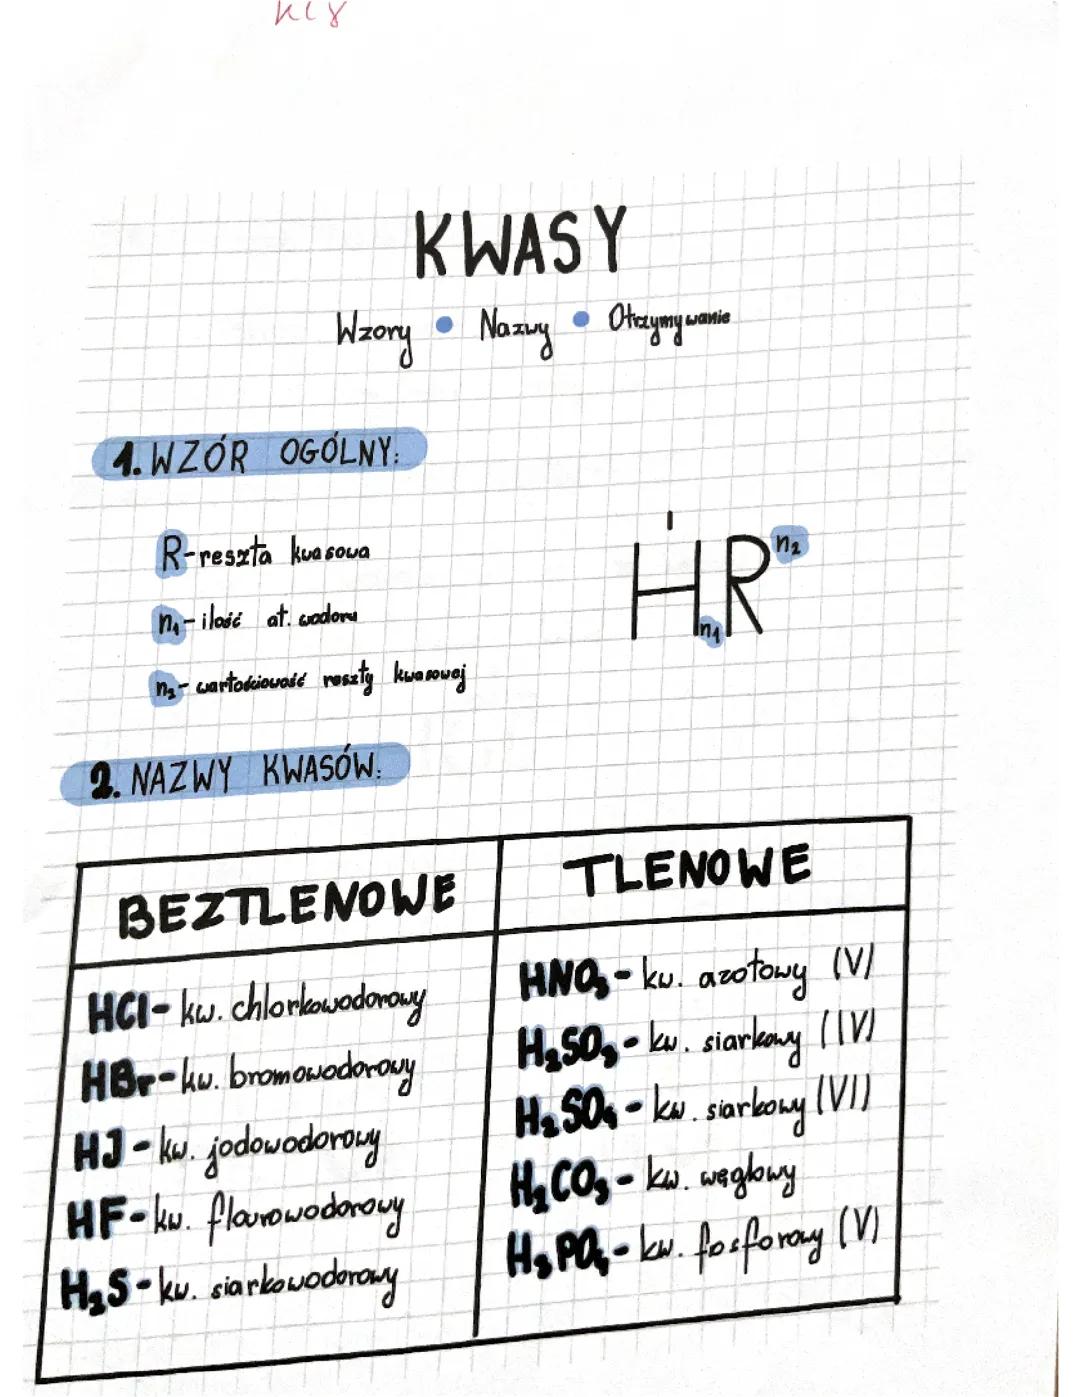 kl 8
KWASY
Wzory • Nazwy • Otrzymywanie
1. WZÓR OGÓLNY:
R - reszta kwasowa
n₁ - ilość at. wodoru
n₂ - wartościowość reszty kwasowej
I
Hn₁Rn₂
2. NAZWY KWASÓW:
BEZTLENOWE
HCl - kw. chlorkowodorowy
HBr - kw. bromowodorowy
HJ - kw. jodowodorowy
HF - kw. flourowodorowy
H₂S - kw. siarkowodorowy
TLENOWE
HNO₃ - kw. azotowy (V)
H₂SO₃ - kw. siarkowy (IV)
H₂SO₄ - kw. siarkowy (VI)
H₂CO₃ - kw. węglowy
H₃PO₄ - kw. fosforowy (V)